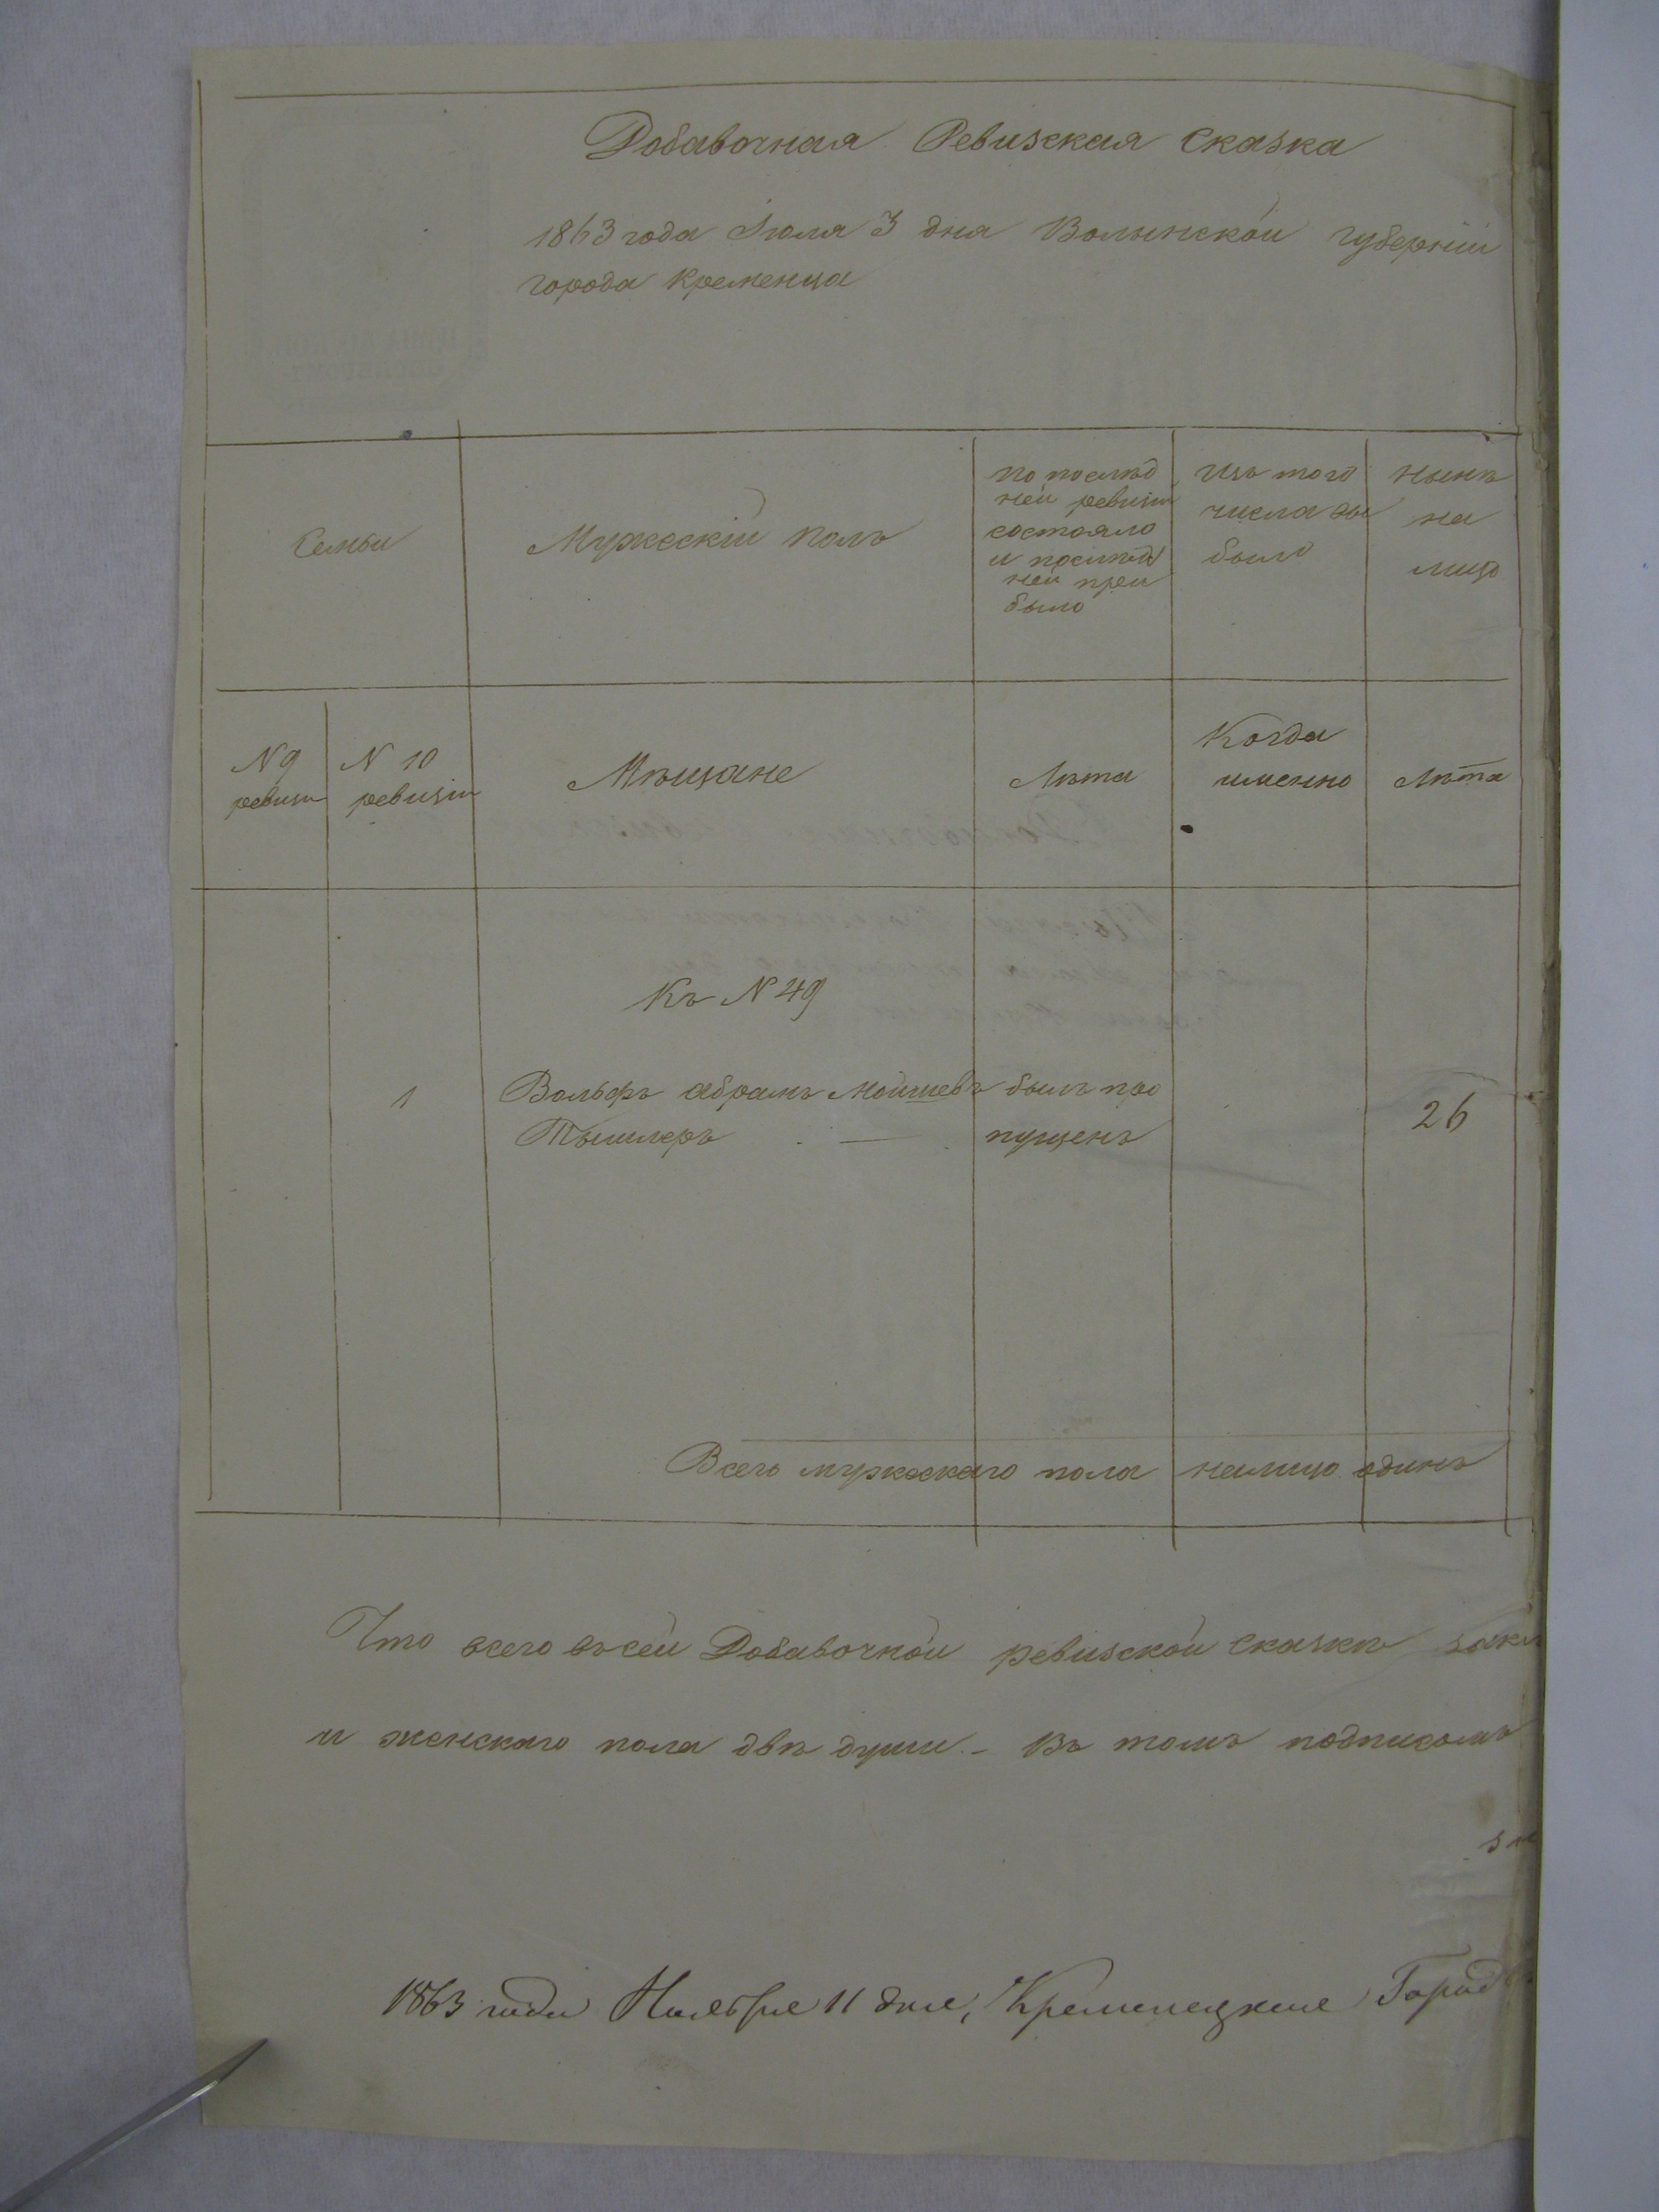 Добавочная Ревизская Сказка
1863 года Іюля 3 дня Волынской губерніи
города Кременца
Семьи
Мужескій полъ
по послѣд
ней ревизіи
состояло
и послѣд
ней при
было
Изъ того
числа вы
было
нынѣ
на
лицо
N 9
ревизіи
N 10
ревизіи
Мѣщане
Лѣта
Когда
именно
Лѣта
Къ N 49
1 Вольфъ Абрамъ Мошковъ былъ про
Тышлеръ — пущенъ 26
Всего мужескаго пола налицо одинъ
Что всего въ сей Добавочной ревизской сказкѣ закл
и женскаго пола двѣ души. – Въ томъ подписомъ
1863 года Ноября 11 дня, Кременецкая Город